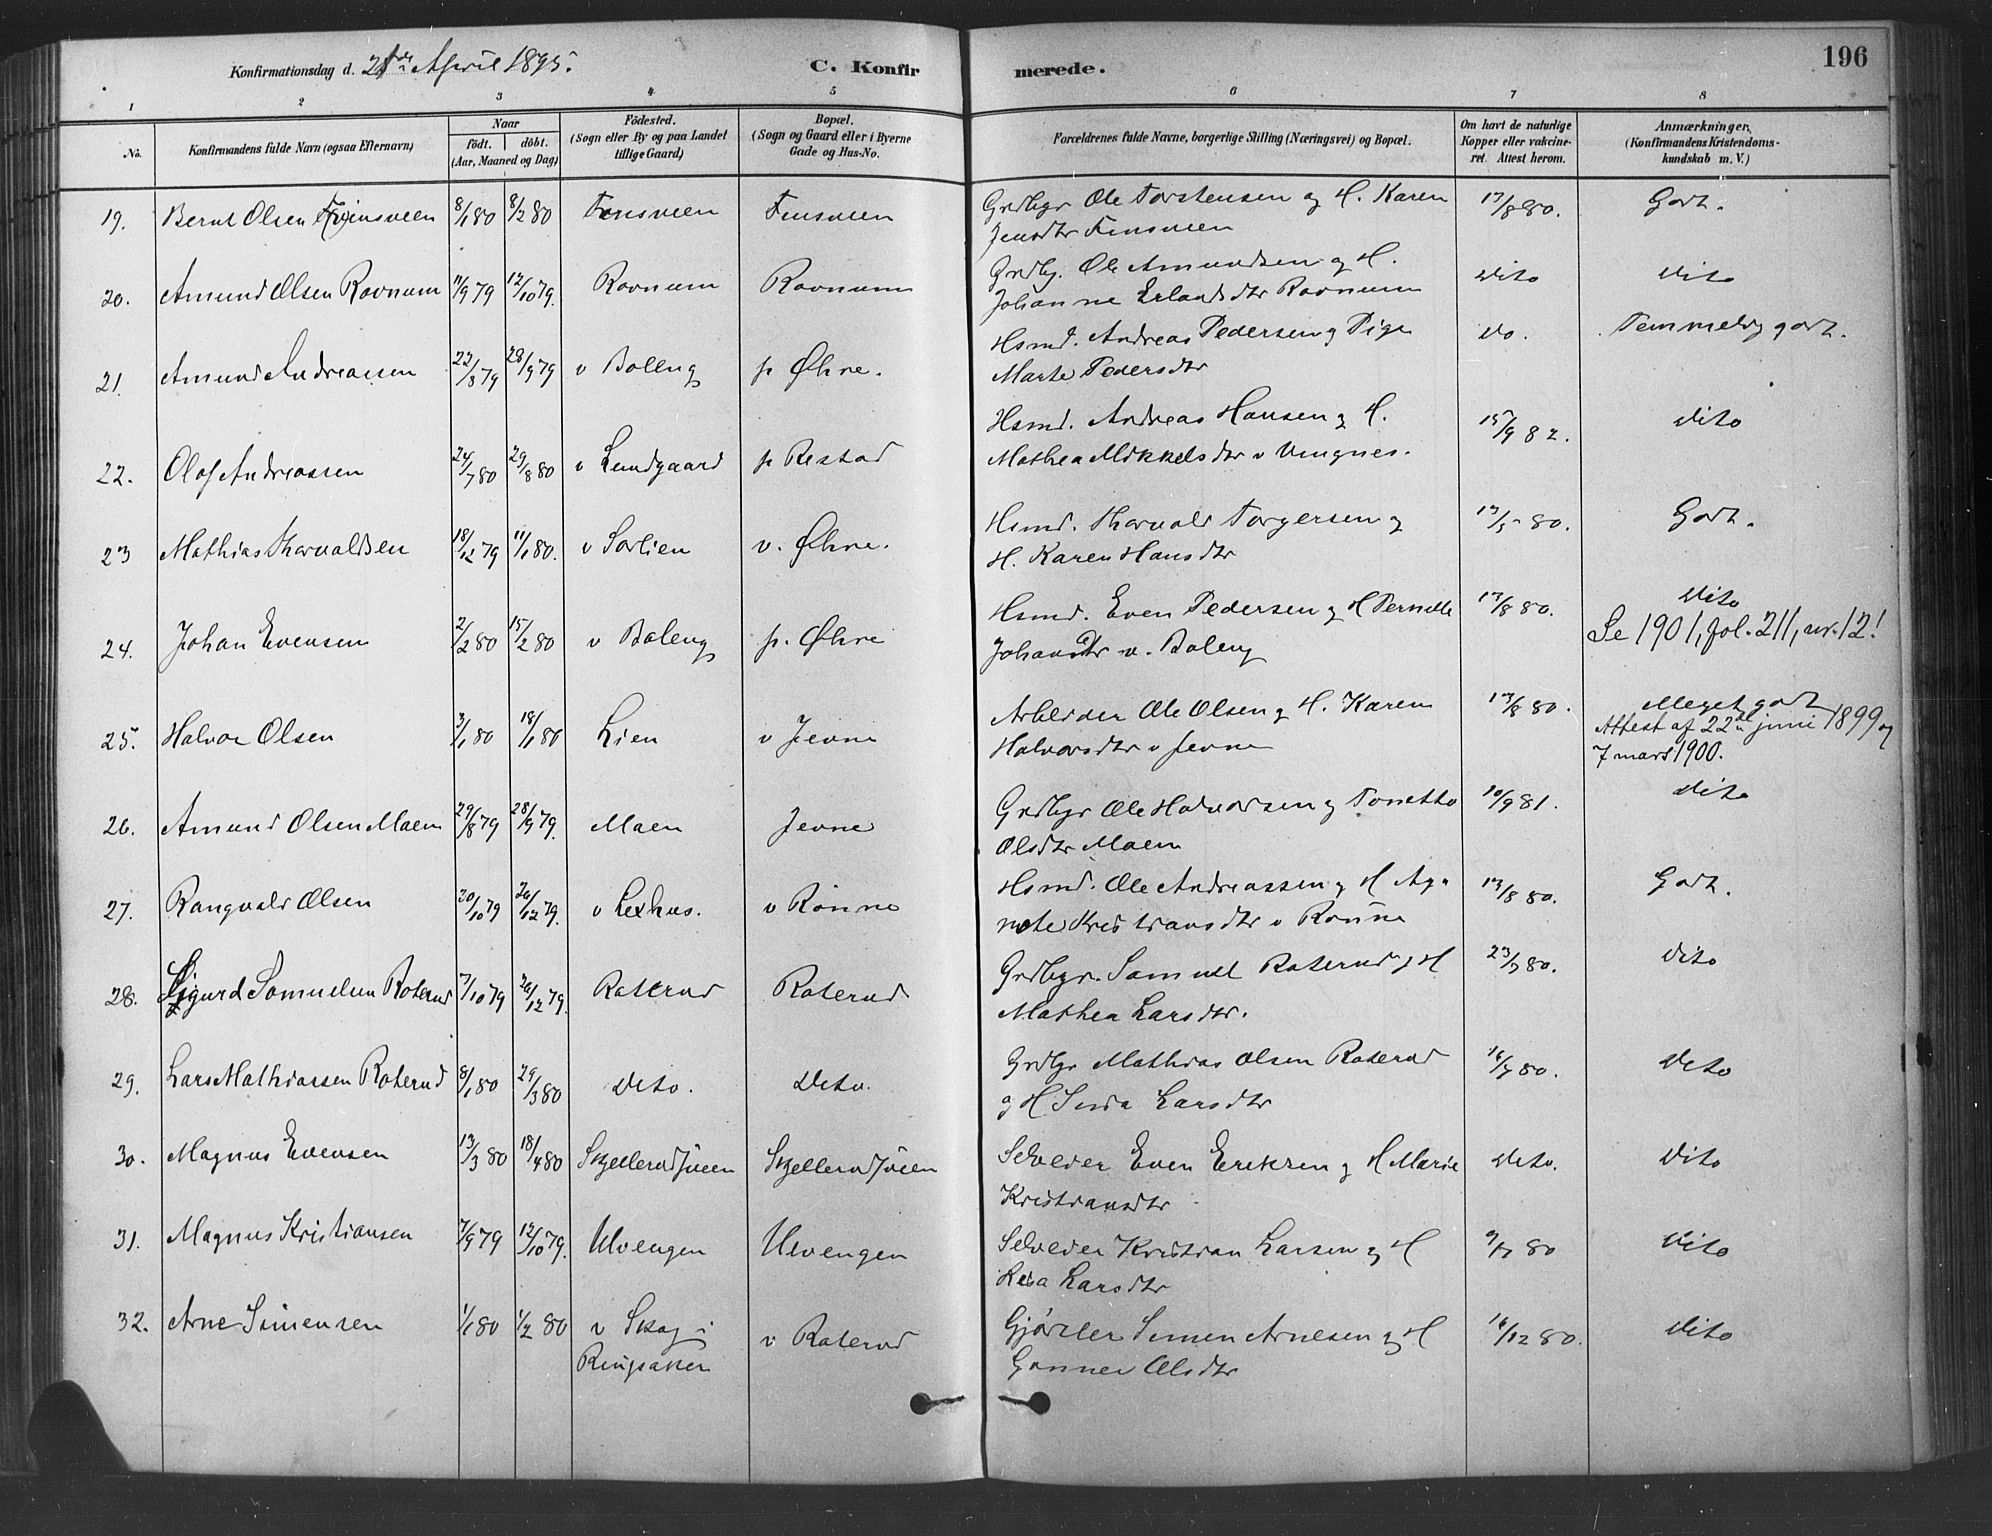 Konfirmationsdag d. 21de April 1895. C. Konfirmerede. 196
1 2 3 4 5 6 7 8
No. Konfirmandens fulde Navn (ogsaa Efternavn) Naar født. døbt. (Aar, Maaned og Dag) Fødested. (Sogn eller By og paa Landet tillige Gaard) Bopæl. (Sogn og Gaard eller i Byerne Gade og Hus-No. Forældrenes fulde Navne, borgerlige Stilling (Næringsvei) og Bopæl. Om havt de naturlige Kopper eller vakcineret. Attest herom. Anmærkninger, (Konfirmandens Kristendomskundskab m. V.)
19. Bernt Olsen 8/1 80 8/2 80 Finsveen Finsveen Grdbgr Ole Torstensen og H. Karen 17/8 80. Godt.
Jensdtr Finsveen
20. Amund Olsen Rovnum 11/9 79 12/10 79. Rovnum Rovnum Grdbg. Ole Amundsen og H. Dito Dito
Johanne Erlandsdtr Rovnum
21. Amund Andreassen 22/8 79 28/9 79 v Boleng p Øhre. Hsmd. Andreas Pedersen og Pige Do. Temmelig godt.
Marte Pedersdtr
22. Olaf Andreassen 24/7 80 29/8 80 v Lundgaard p Restad Hsmd. Andreas Hansen og H. 15/9 82. Dito
Mathea Mikkelsdtr v Vingnes.
23 Mathias Thorvaldsen 18/12 79 11/1 80. v Sorlien v. Øhre. Hsmd. Thorvald Torgersen og 13/5 80. Godt.
H. Karen Hansdtr
24. Johan Evensen 2/2 80 15/2 80 v Boleng p. Øhre Hsmd. Even Pedersen og H Pernille 17/8 80. Dito
Johansdtr v. Boleng Se 1901, fol. 211, nr. 12!
25. Halvor Olsen 3/1 80 18/1 80 Lien v Jevne Arbeider Ole Olsen og H. Karen 13/8 80. Meget godt
Halvorsdtr v Jevne Attest af 22de juni 1899 og
7 mars 1900.
26. Amund Olsen Maen 29/8 79 28/9 79. Maen Jevne Grdbgr Ole Halvorsen og Tonette 10/9 81. Dito
Olsdtr Maen
27. Rangvald Olsen 30/10 79 26/12 79. v Lexhus. v Rönne Hsmd. Ole Andreassen og H Ag- 13/8 80. Godt.
nete Kristiansdtr v Rönne
28. Sigurd Samuelsen Roterud 7/10 79 26/12 79. Roterud Roterud Grdbgr. Samuel Roterud og H 23/7 80. Dito
Mathea Larsdtr.
29. Lars Mathiassen Roterud 8/1 80 29/3 80 Dito. Dito. Grdbgr Mathias Olsen Roterud 16/7 80. Dito
og H Larsdtr
30. Magnus Evensen 13/3 80 18/4 80 Skjellerudsveen Skjellerudsveen Selveier Even Eriksen og H Marie Dito. Dito
Kristiansdtr
31. Magnus Kristiansen 7/9 79 12/10 79. Ulvengen Ulvengen Selveier Kristian Larsen og H 9/7 80 Dito
Lisa Larsdtr
32. Arne Simensen 1/1 80 1/2 80 v Skog i v Roterud Gjørtler Simen Arnesen og H 16/12 80. Dito
Ringsaker Gunner Olsdtr